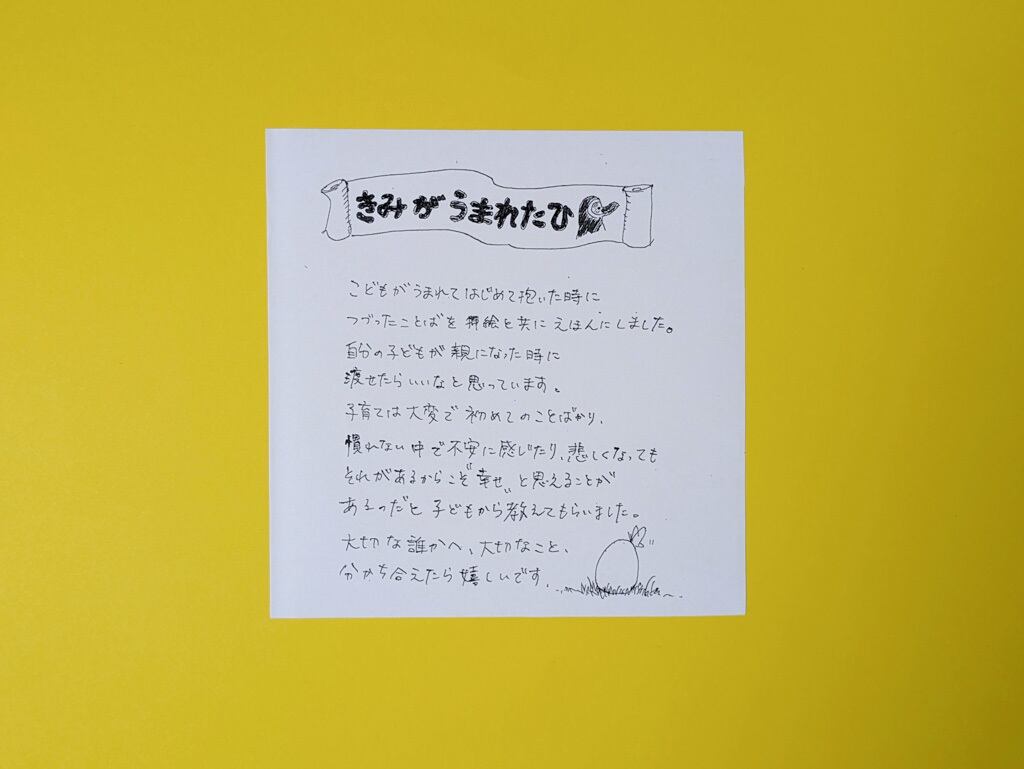 きみがうまれたひ
こどもがうまれてはじめて抱いた時に
つづったことばを挿絵と共にえほんにしました。
自分の子どもが親になった時に
渡せたらいいなと思っています。
子育ては大変で初めてのことばかり、
慣れない中で不安に感じたり、悲しくなっても
それがあるからこそ〝幸せ〟と思えることが
あるのだと子どもから教えてもらいました。
大切な誰かへ、大切なこと、
分かち合えたら嬉しいです。